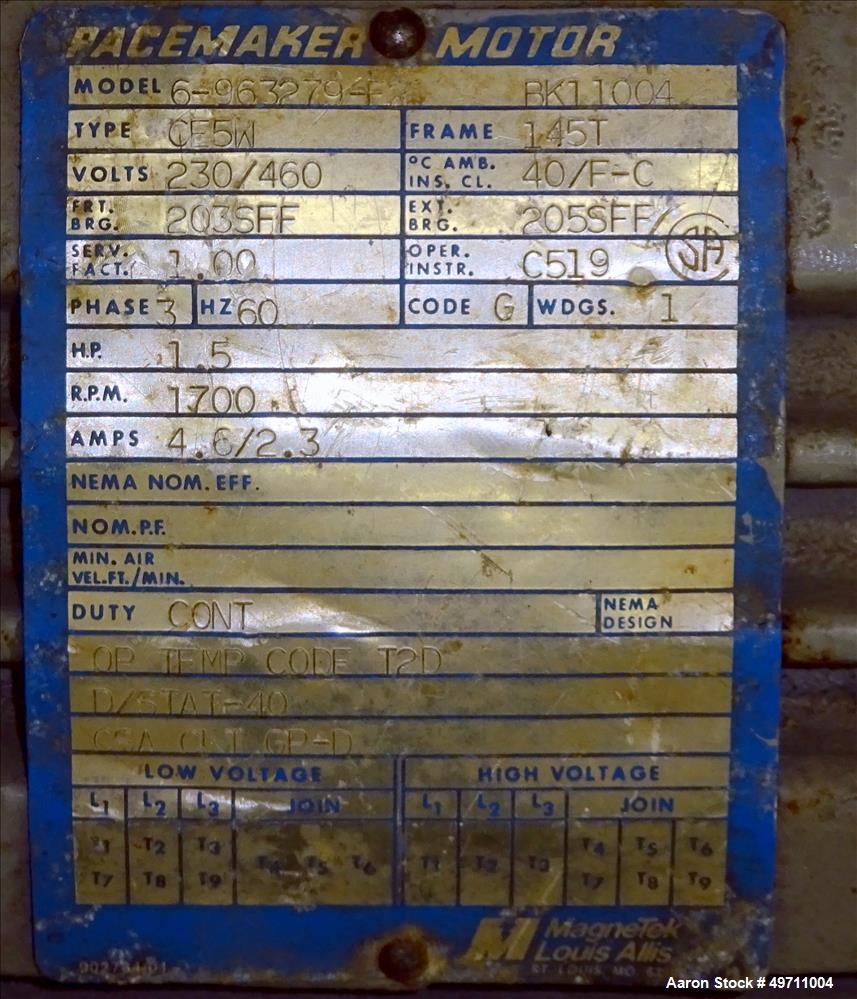 PACEMAKER MOTOR
MODEL 6-963279-F2 BK11004
TYPE CE5W FRAME 145T
VOLTS 230/460 °C AMB. INS. CL. 40/F-C
FRT. BRG. 203SFF EXT. BRG. 205SFF
SERV. FACT. 1.00 OPER. INSTR. C519 SA
PHASE 3 HZ 60 CODE G WDGS. 1
H.P. 1.5
R.P.M. 1700
AMPS 4.6/2.3
NEMA NOM. EFF.
NOM. P.F.
MIN. AIR VEL. FT./MIN.
DUTY CONT NEMA DESIGN
OP TEMP CODE T2D
D/STAT-40
CSA GP-D
LOW VOLTAGE HIGH VOLTAGE
L1 L2 L3 JOIN L1 L2 L3 JOIN
T1 T2 T3 T4 T5 T6 T1 T2 T3 T4 T5 T6
T7 T8 T9 T7 T8 T9
MagneTek
Louis Allis
ST. LOUIS, MO
Aaron Stock # 49711004